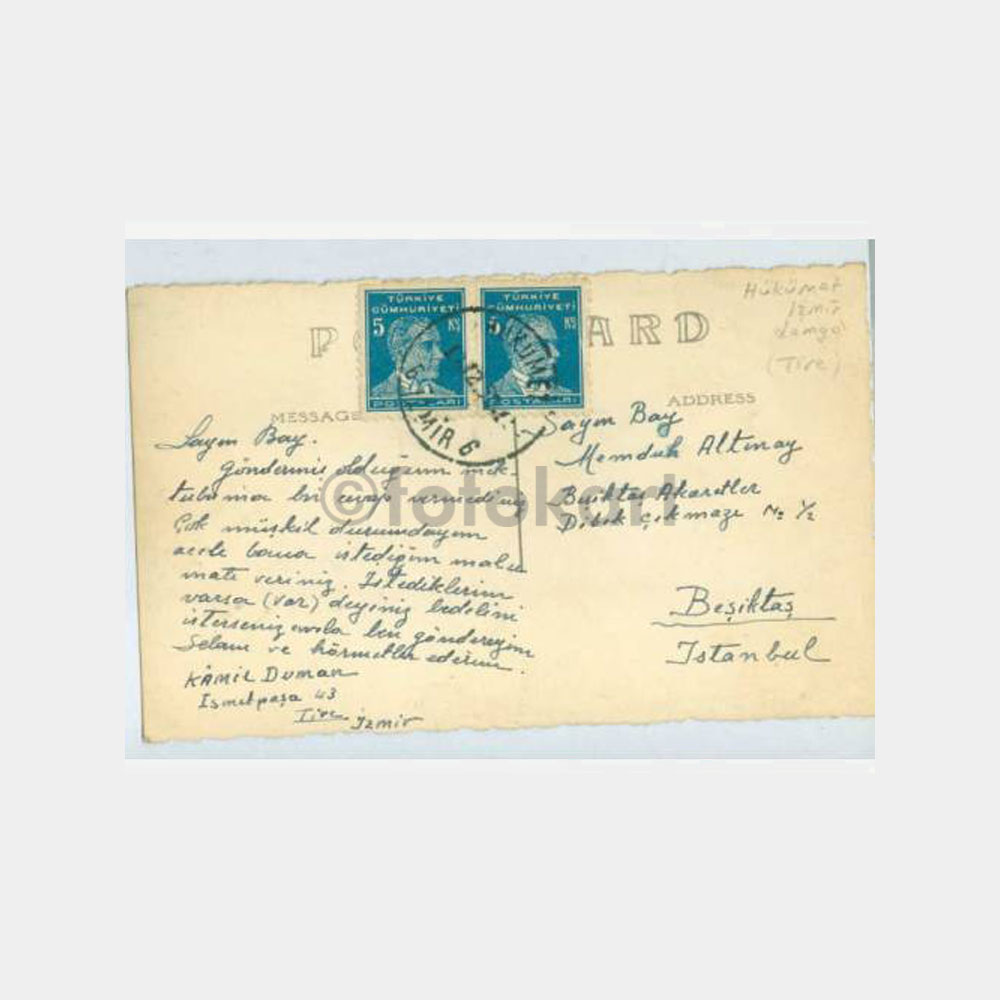 Hükümet
İzmir
damga
(Tire)
TÜRKİYE
CÜMHURİYETİ
5 KŞ
POSTALARI
TÜRKİYE
CÜMHURİYETİ
5 KŞ
POSTALARI
İZMİR 6
ARD
MESSAGE
ADDRESS
Sayın Bay.
Göndermiş olduğum mek
tubuma bir cevap vermediniz
Çok müşkil durumdayım
acele bana istediğim malu
matı veriniz. İstediklerim
varsa (var) deyiniz bedelini
isterseniz evvela ben göndereyim
Selam ve hürmetler ederim.
KÂMİL Duman
İsmetpaşa 43
Tire İzmir
Sayın Bay
Memduh Altınay
Beşiktaş Akaretler
Dibek Çıkmazı No 1/2
Beşiktaş
Istanbul
©fotokart